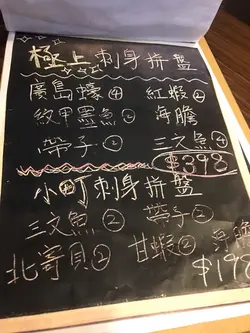 極上刺身拼盤
廣島蠔④ 紅蝦②
紋甲墨魚② 海膽
帶子② 三文魚④
$398
小町刺身拼盤
三文魚② 帶子②
北寄貝② 甘蝦②
$198